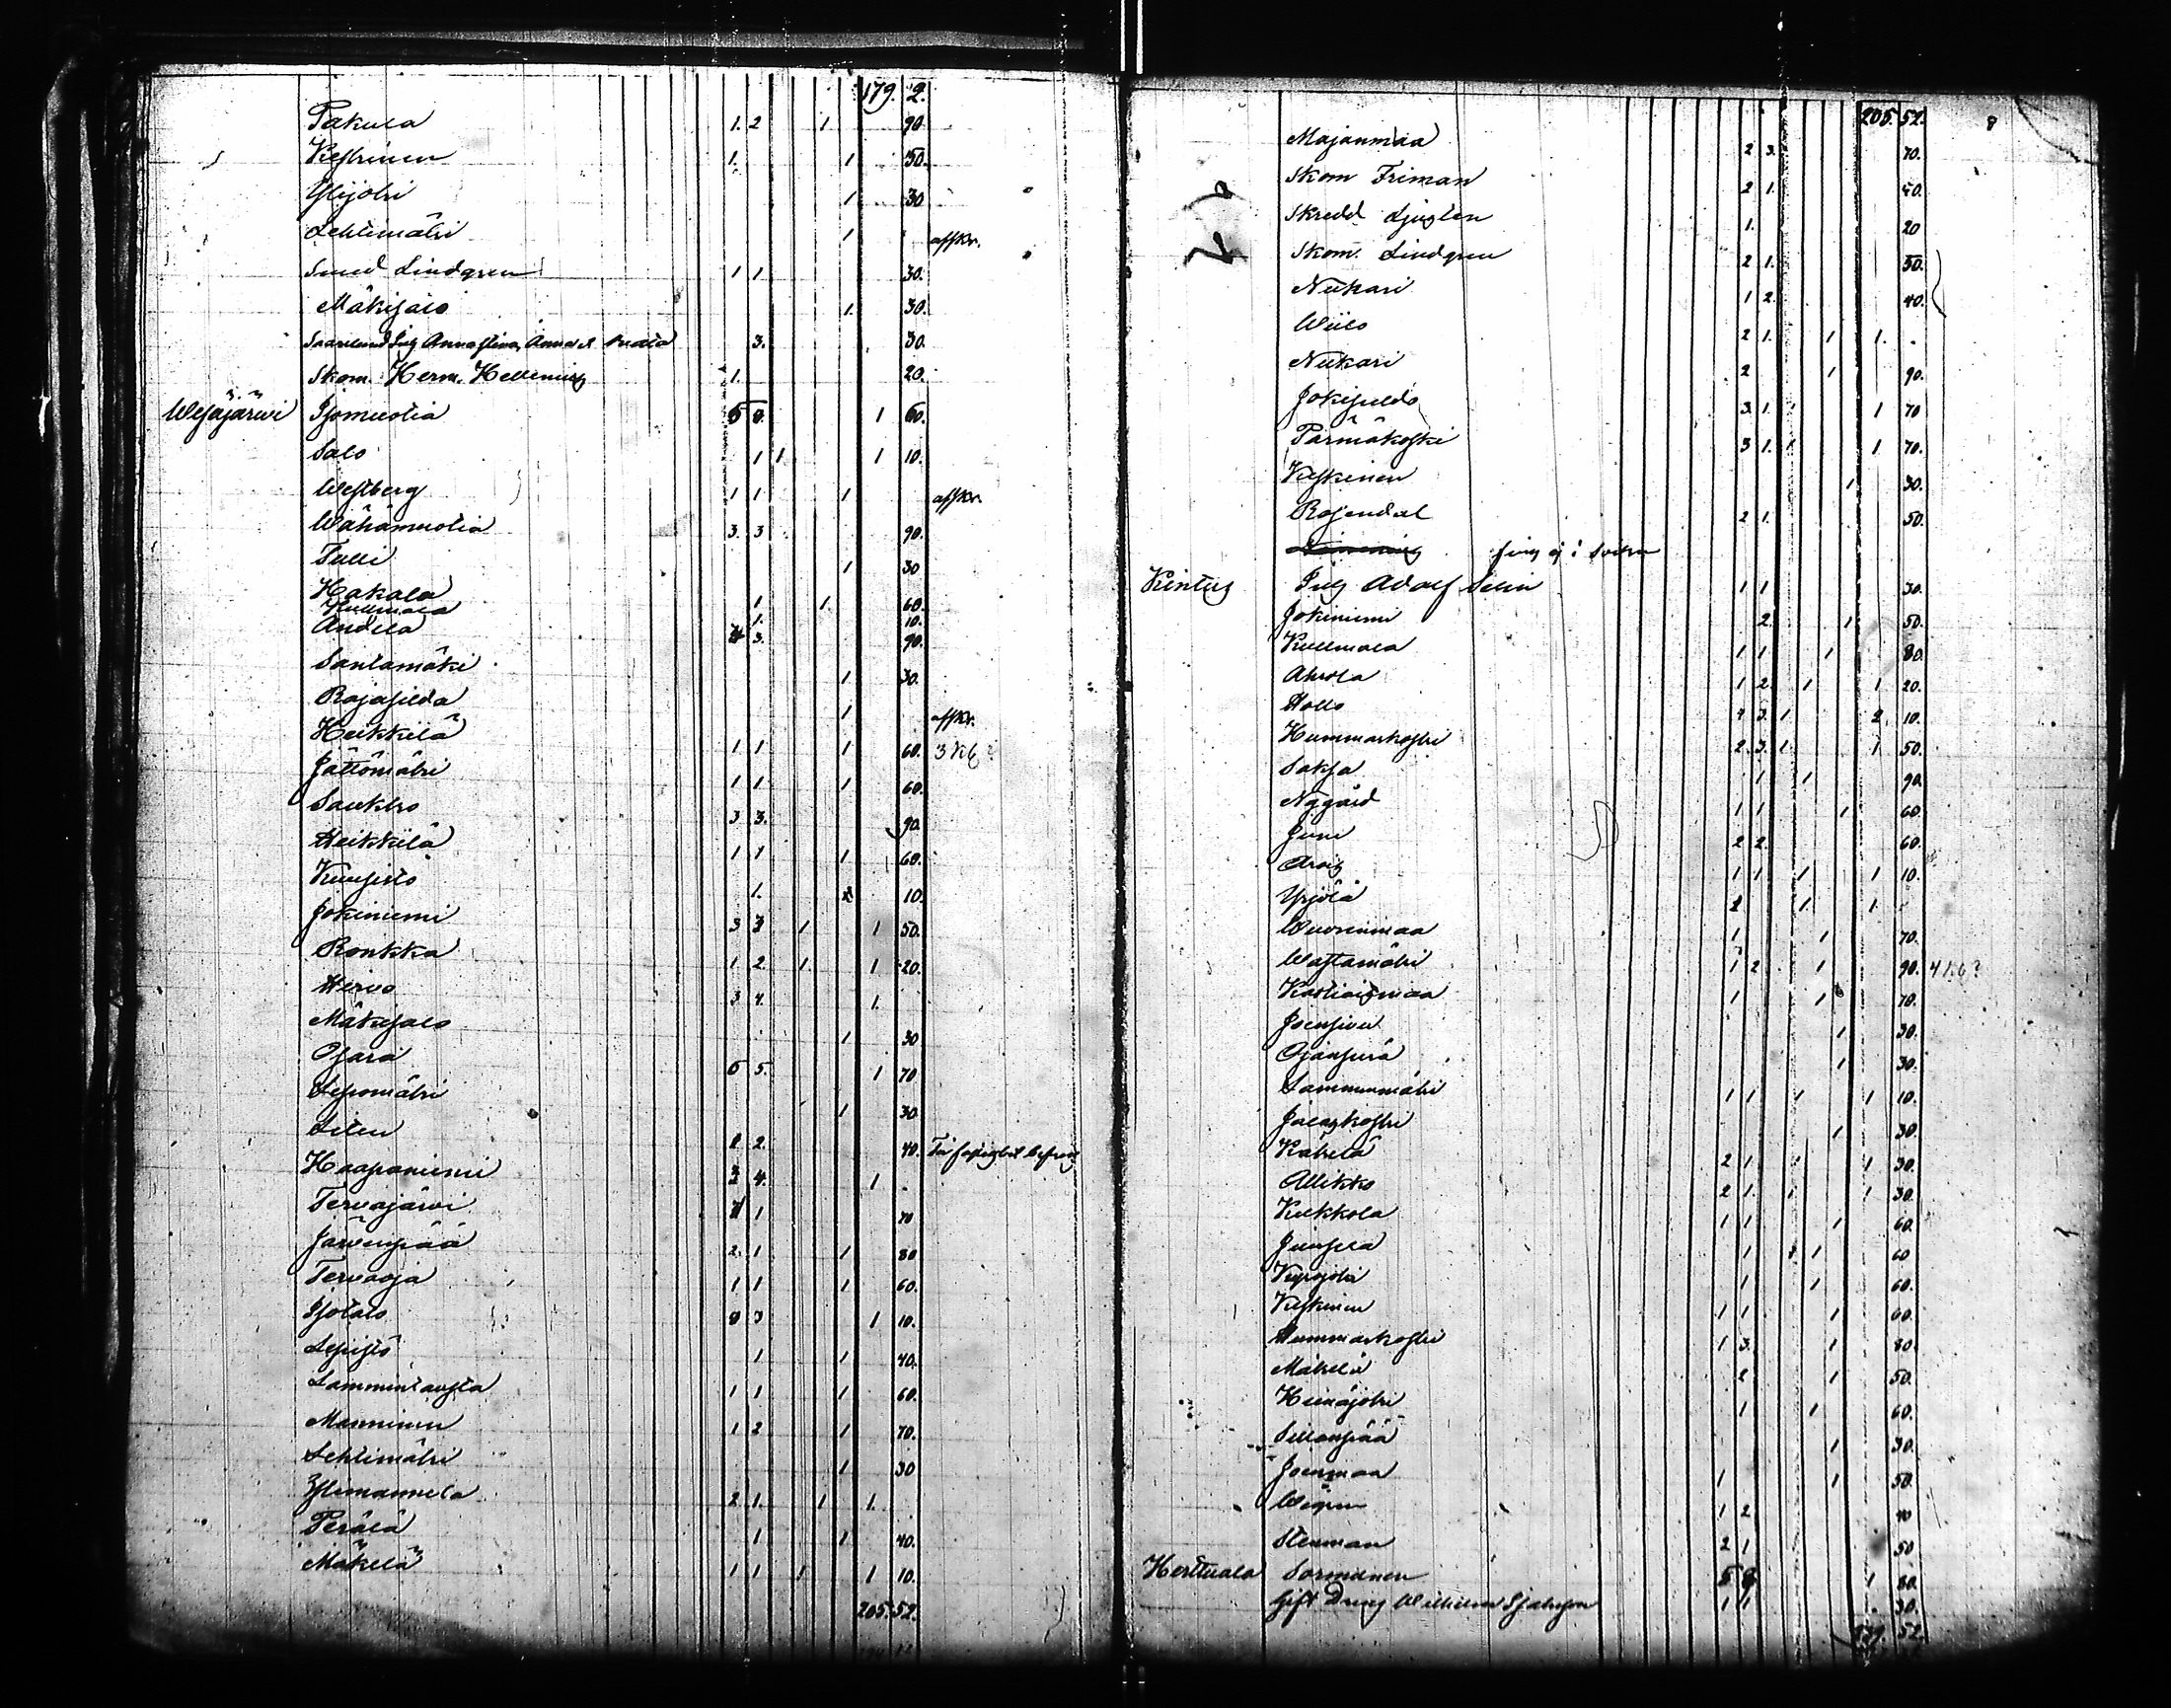 179. 2.
Pakula 1. 2 1 90.
Keskinen 1. 1 50.
Ylijoki 1. 30
Lehtimäki 1 afskr.
Smed Lindgren 1 1 30.
Mäkisalo 1. 30.
3. 30.
Skom. Herm. Hellenius 1. 20.
Wesajärwi Isomuotia 5 8. 1 60.
Salo 1 1 1 10.
Westberg 1 1 1 afskr.
Wähämuotia 3. 3 90.
Tulli 1 30
Hakala 1 1. 60.
Kullmala 1. 10.
Andela 3. 90.
Santamäki 1 30.
Rajasilda 1 afskr.
Heikkilä 1 1 1 60. 3 kb?
Jättömäki 1 1 1 60.
Saukko 3 3. 90.
Heikkilä 1 1 1 60.
Kuusisto 1. 10.
Jokiniemi 3 3 1 1 50.
Ronkka 1 2. 1 1 20.
Hirvo 3 4. 1.
Mäkisalo 1 30
Ojara 5 5. 1 70
Lepomäki 1 30.
Liten 2. 40.
Haapaniemi 3 4. 1
Tervajärwi 1 70
Järvenpää 2. 1 1 80
Tervaoja 1 1 1 60.
Isotalo 8 3 1 10.
Lepistö 1 1 40.
Lammintausta 1 1 1 60.
Manninen 1 2 1 70.
Lehtimäki 1 30
Ylimannela 2. 1. 1 1.
Perälä 1 1 40.
Mäkelä 1 1 1 1 10.
205. 52.
205. 52. 8
Majanmaa 2 3. 70.
Skom Friman 2 1. 40.
Skredd Ljugten 1. 20
Skom. Lindgren 2 1. 50.
Niikari 1 2. 40.
Wiilo 2 1. 1 1.
Niikari 2 1 90.
Jokisildo 3. 1. 1 1 70
Pärmäkoski 3 1. 1 1 70.
Keskinen 1 30.
Rosendal 2 1. 50.
Kintus Adolf Selin 1 1 30.
Jokiniemi 2. 1 50.
Kullmala 1 1 1 80.
Ahola 1 2. 1 1 20.
Hollo 3. 1 2. 10.
Hummarkoski 2. 3. 1 1 50.
Saksa 1 1 90
Nygård 1 1 1 60.
Juni 2 2. 60.
1 1 1 1 10.
Yrjölä 2 1 1.
Wuorenmaa 1 1 70.
Wastamäki 1 2 1 90. 4 kb?
Kastiaismaa 1 1 70.
Joensivu 1 30.
Ojansuu 1 30.
Lammenmäki 1 1 1 1 10.
Jalaskoski 1 30.
Käkelä 2 1 1 1 30.
Allikko 2 1. 1 1 30.
Kukkola 1 1 1 60.
Junsila 1 1 60
Kupojoki 1 1 60.
Keskinen 1 1 1 60.
Hummarkoski 1 3. 1 80.
Mäkelä 2 1 50.
Heinäjoki 1 1 60.
Sillanpää 1 30.
Joenmaa 1 1 50.
Wigren 1 2 40
Stenman 2 1 50
Herttuala Sormunen 5 1 80.
Gift Dreng Wilhelm 1 1 30.
52.